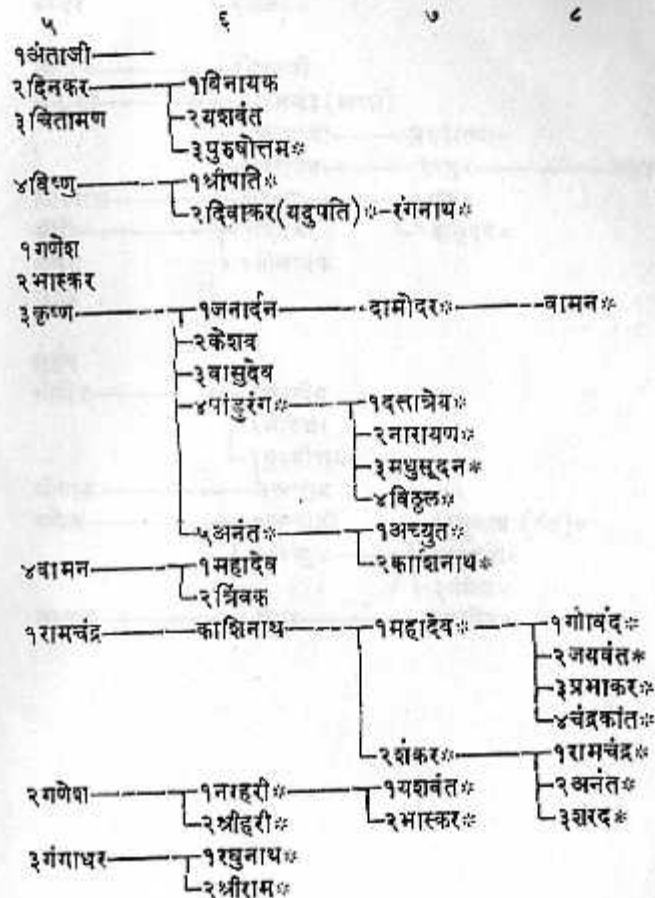 ५ ६ ७ ८
१अंताजी
२दिनकर १विनायक
३चिंतामण २यशवंत
३पुरुषोत्तम*
४विष्णु १श्रीपति*
२दिवाकर(यदुपति)*-रंगनाथ*
१गणेश
२भास्कर
३कृष्ण १जनार्दन दामोदर* वामन*
२केशव
३वासुदेव
४पांडुरंग* १दत्तात्रेय*
२नारायण*
३मधुसूदन*
४विठ्ठल*
५अनंत* १अच्युत*
४वामन १महादेव २काशिनाथ*
२त्रिंबक
१रामचंद्र काशिनाथ १महादेव* १गोविंद*
२जयवंत*
३प्रभाकर*
४चंद्रकांत*
२शंकर* १रामचंद्र*
२गणेश १नरहरी* १यशवंत* २अनंत*
२श्रीहरी* २भास्कर* ३शरद*
३गंगाधर १रघुनाथ*
२श्रीराम*